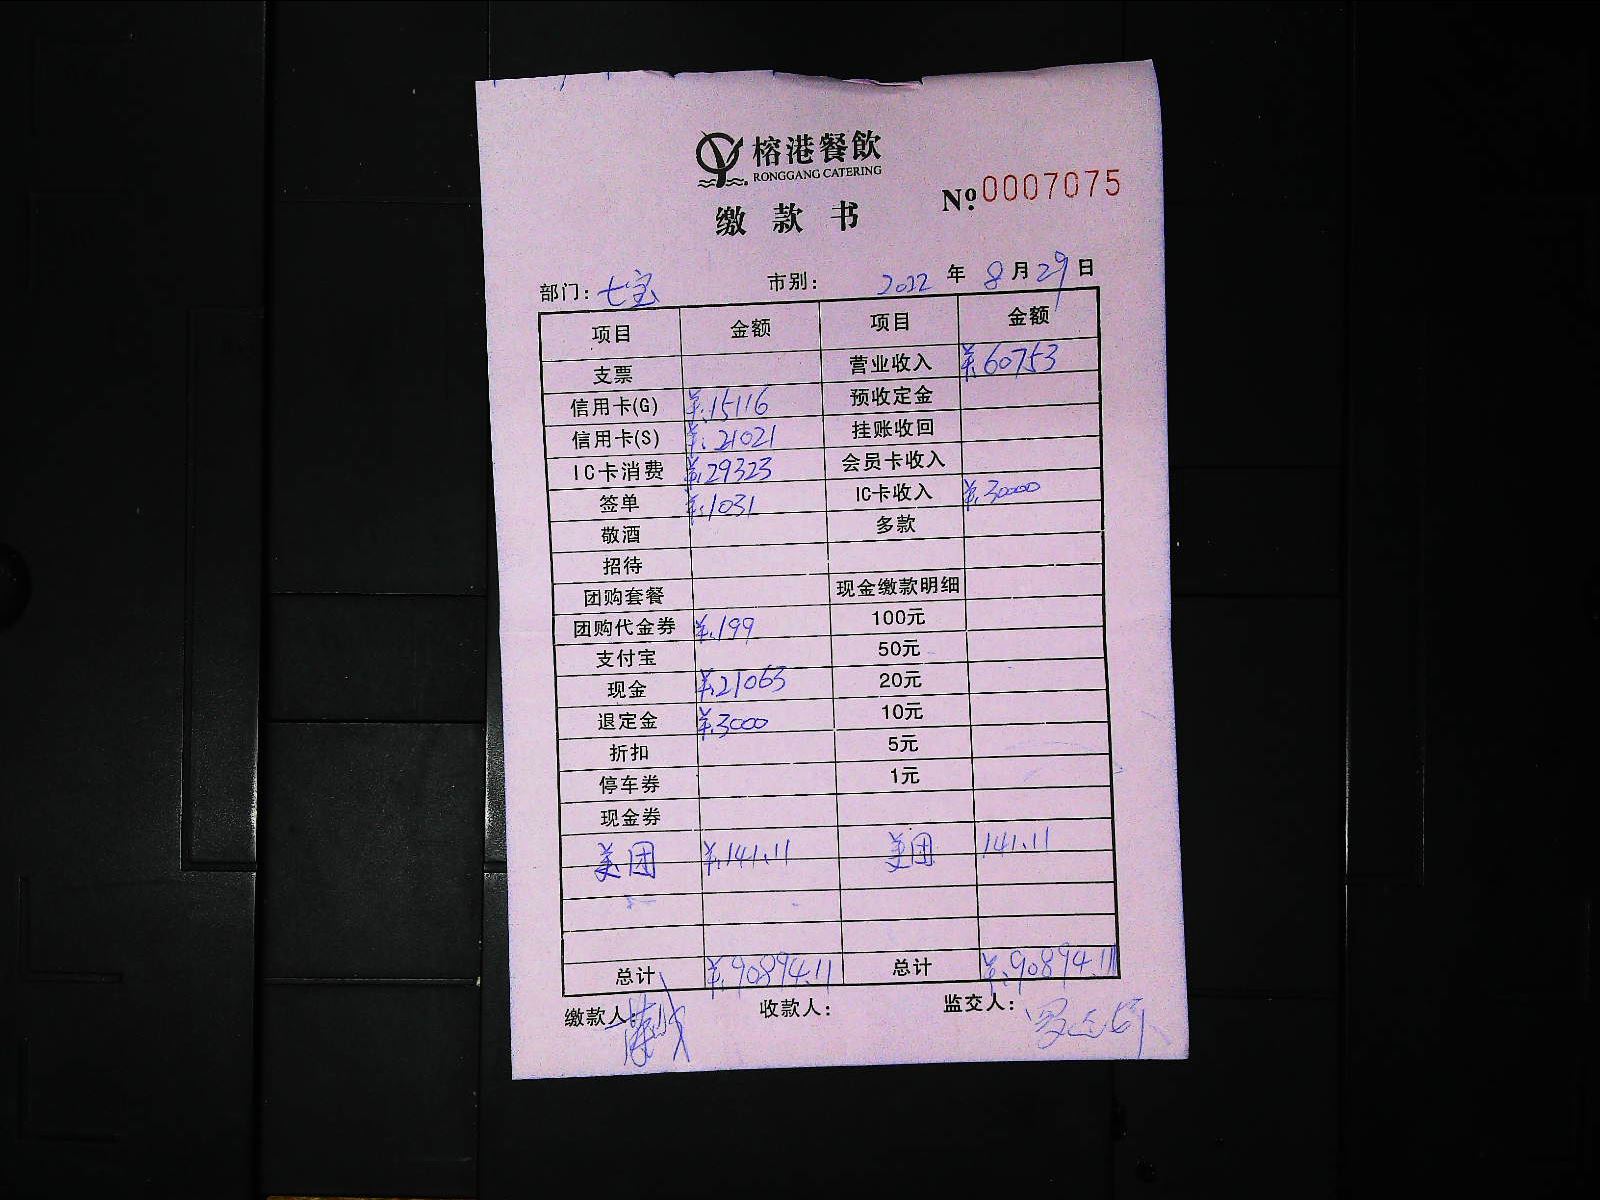 榕港餐飲
RONGGANG CATERING
缴款书
№ 0007075
部门：七宝 市别： 2022 年 8 月 29 日
项目 金额 项目 金额
支票 营业收入 ¥.60753
信用卡(G) ¥.15116 预收定金
信用卡(S) ¥.21021 挂账收回
IC卡消费 ¥.29323 会员卡收入
签单 ¥.1031 IC卡收入 ¥.30000
敬酒 多款
招待
团购套餐 现金缴款明细
团购代金券 ¥.199 100元
支付宝 50元
现金 ¥.21063 20元
退定金 ¥.3000 10元
折扣 5元
停车券 1元
现金券
美团 ¥.141.11 美团 141.11
总计 ¥.90894.11 总计 ¥.90894.11
缴款人： 收款人： 监交人：